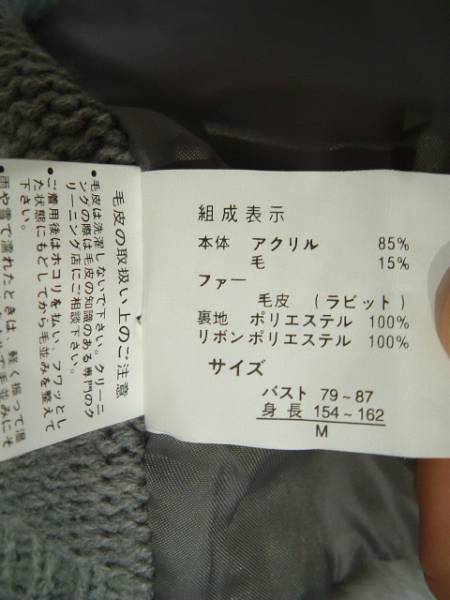 組成表示
本体 アクリル 85%
毛 15%
ファー
毛皮 (ラビット)
裏地 ポリエステル 100%
リボン ポリエステル 100%
サイズ
バスト 79~87
身長 154~162
M
毛皮の取扱い上のご注意
•毛皮は洗濯しないで下さい。クリーニ
ングの際は毛皮の知識のある専門のク
リーニング店にご相談下さい。
•ご着用後はホコリを払い、フワッとし
た状態にもどしてから毛並みを整えて
下さい。
•雨や雪で濡れたときは、軽く振って湿
で毛並みにそ